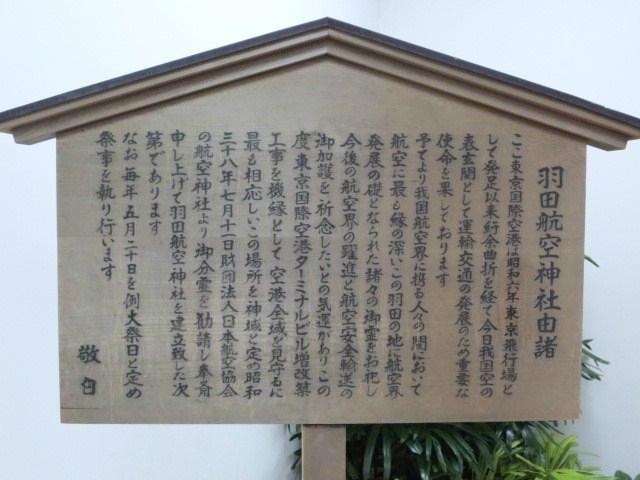 羽田航空神社由諸
ここ東京国際空港は昭和六年東京飛行場と
して発足以来紆余曲折を経て今日我国空の
表玄関として運輸交通の発展のため重要な
使命を果しております
予てより我国航空界に携る人々の間において
航空に最も縁の深いこの羽田の地に航空界
発展の礎となられた諸々の御霊をお祀し
今後の航空界の躍進と航空安全輸送の
御加護を祈念したいとの気運がありこの
度東京国際空港ターミナルビル増改築
工事を機縁として空港全域を見守るに
最も相応しいこの場所を神域と定め昭和
三十八年七月十一日財団法人日本航空協会
の航空神社より御分霊を勧請し奉斉
申し上げて羽田航空神社を建立致した次
第であります
なお毎年五月二十日を例大祭日と定め
祭事を執り行います
敬白